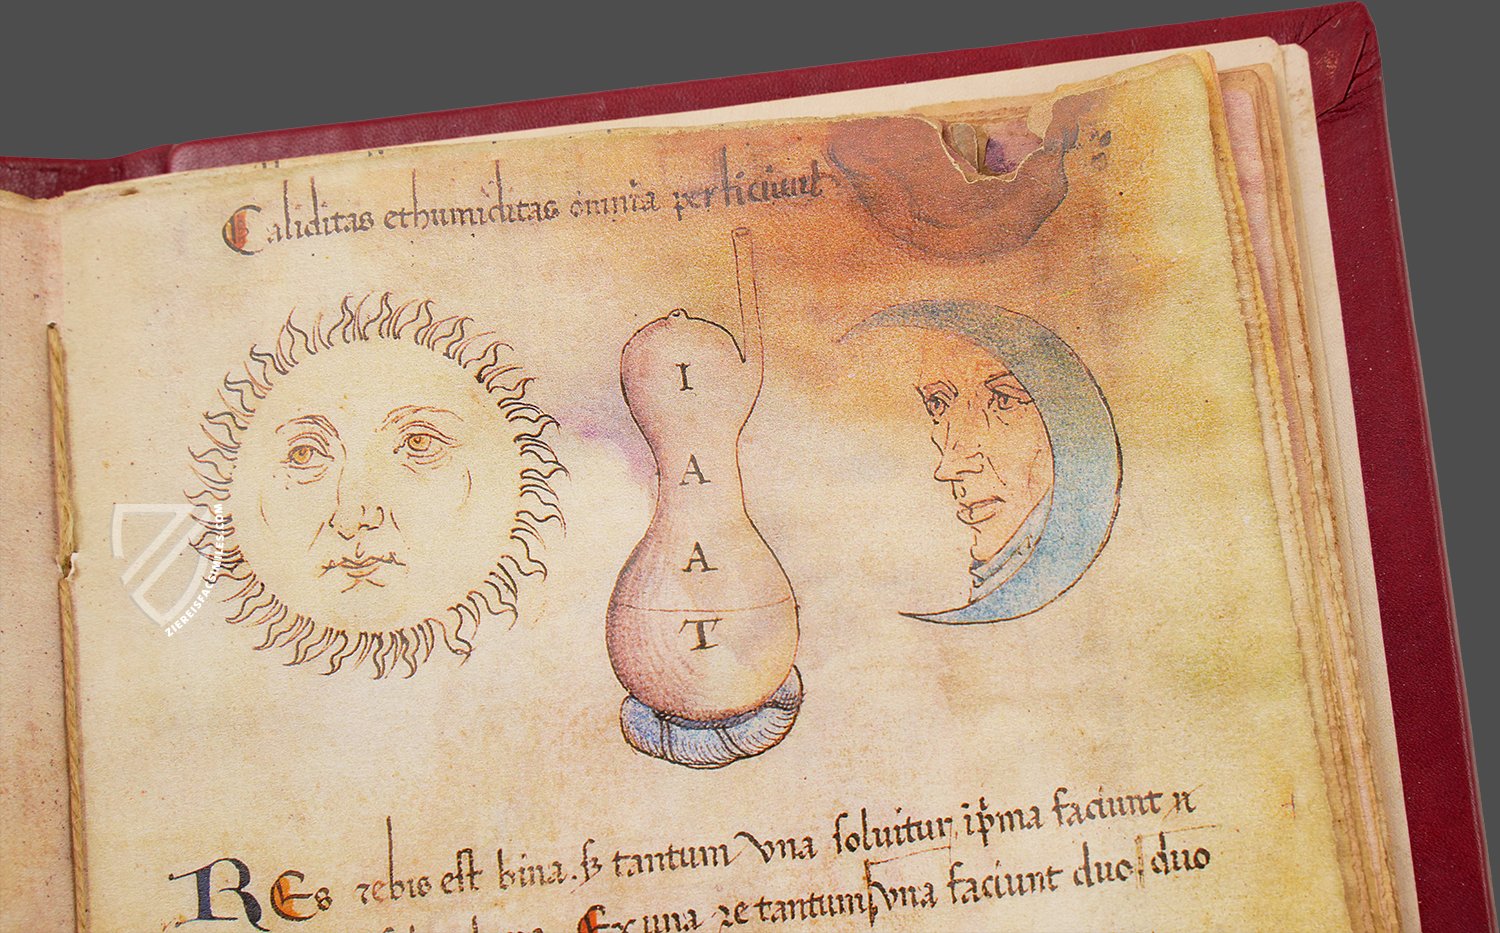 Caliditas et humiditas omnia perficiunt
I
A
A
T
ZIEREISFACSIMILES.COM
REs rebis est bina. sz tantum vna soluitur, ip̃ma faciunt
Ex una re tantum vna faciunt duo, duo